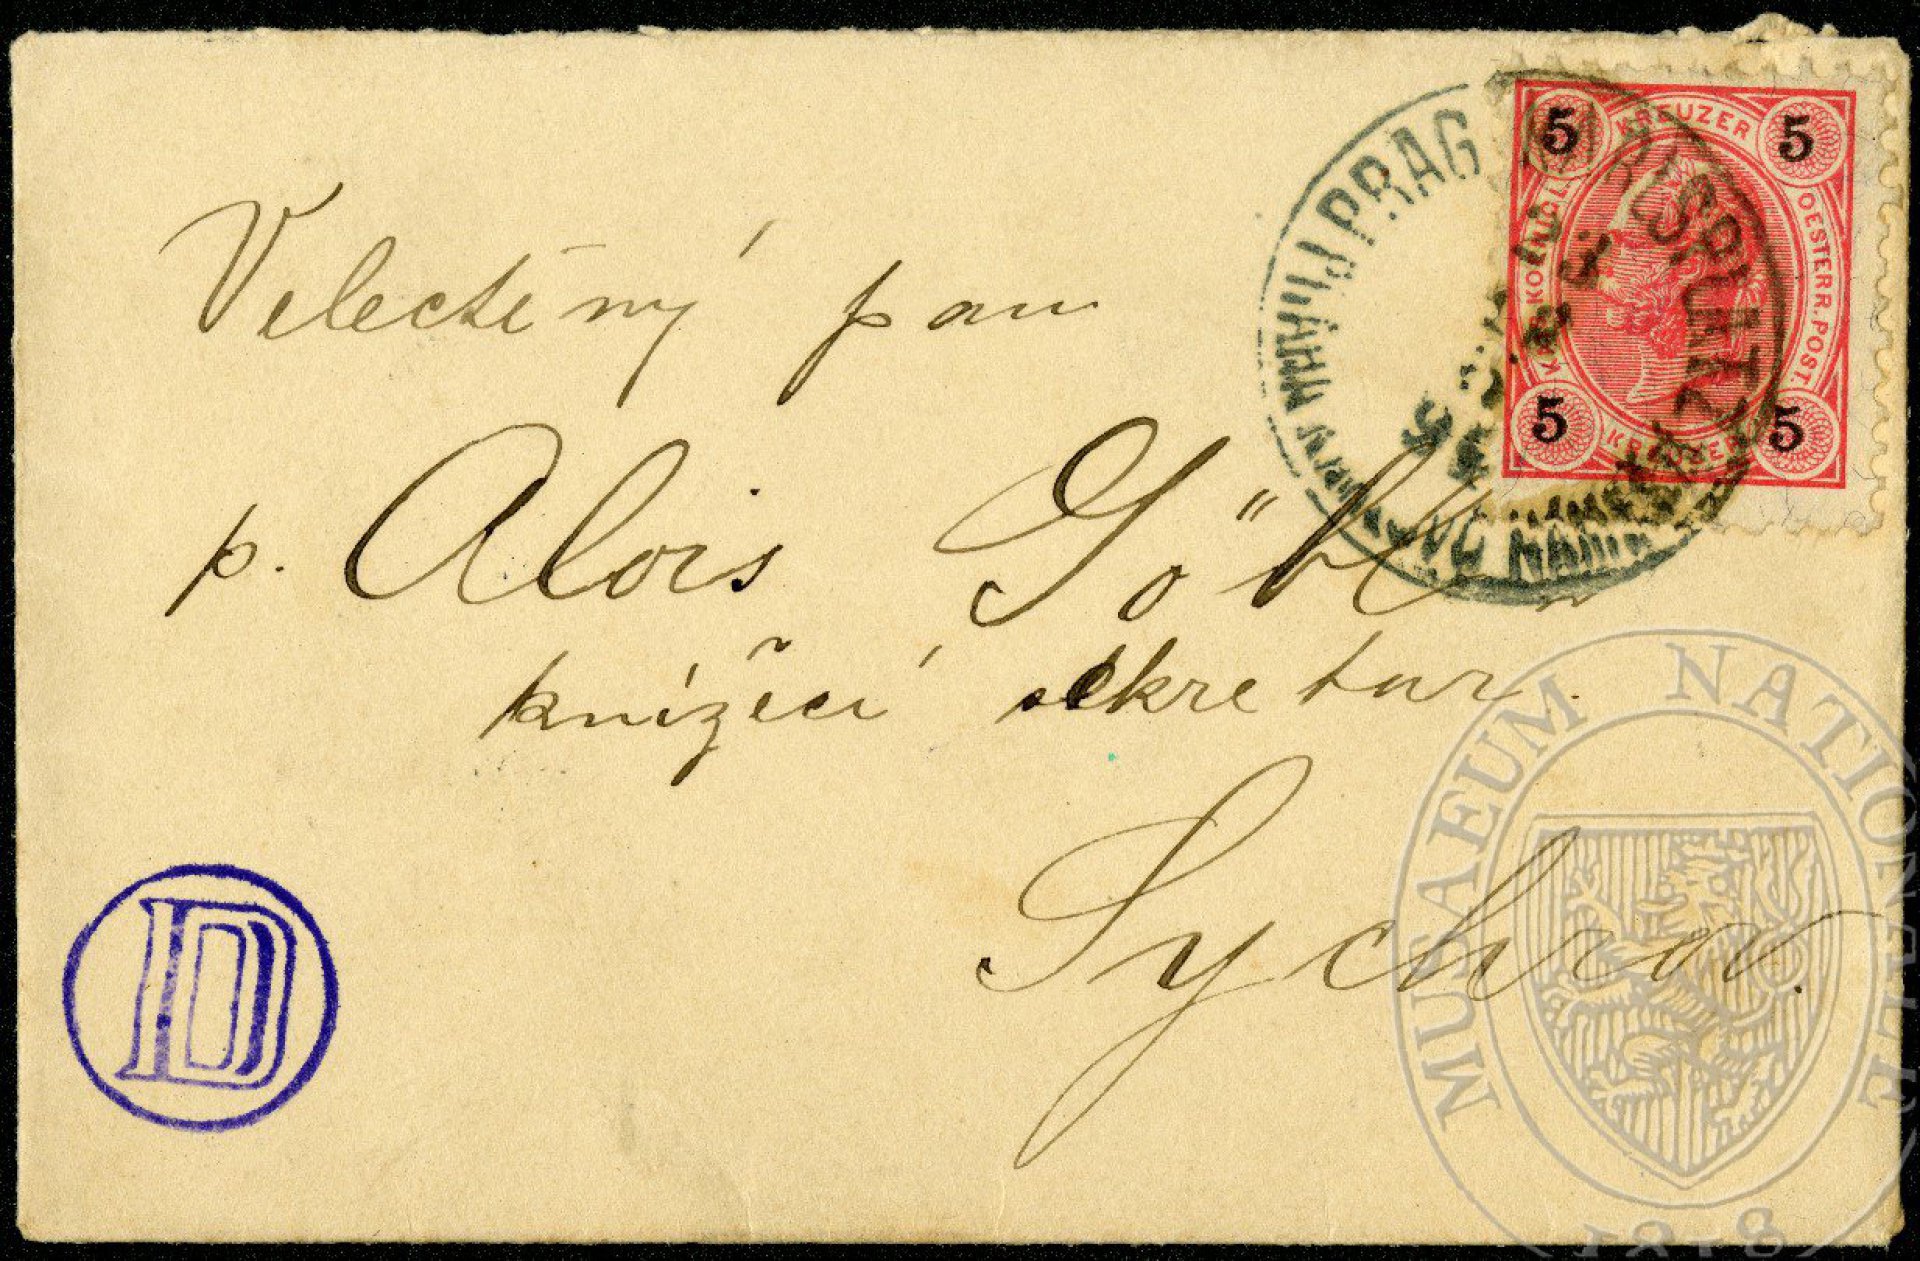 5 KREUZER 5
KAIS. KÖNIGL. OESTERR. POST.
5 KREUZER 5
PRAG
Velectěný pan
p. Alois Göbl
knížecí sekretar.
Sychrov.
D
MUSAEUM NATIONALE
1818